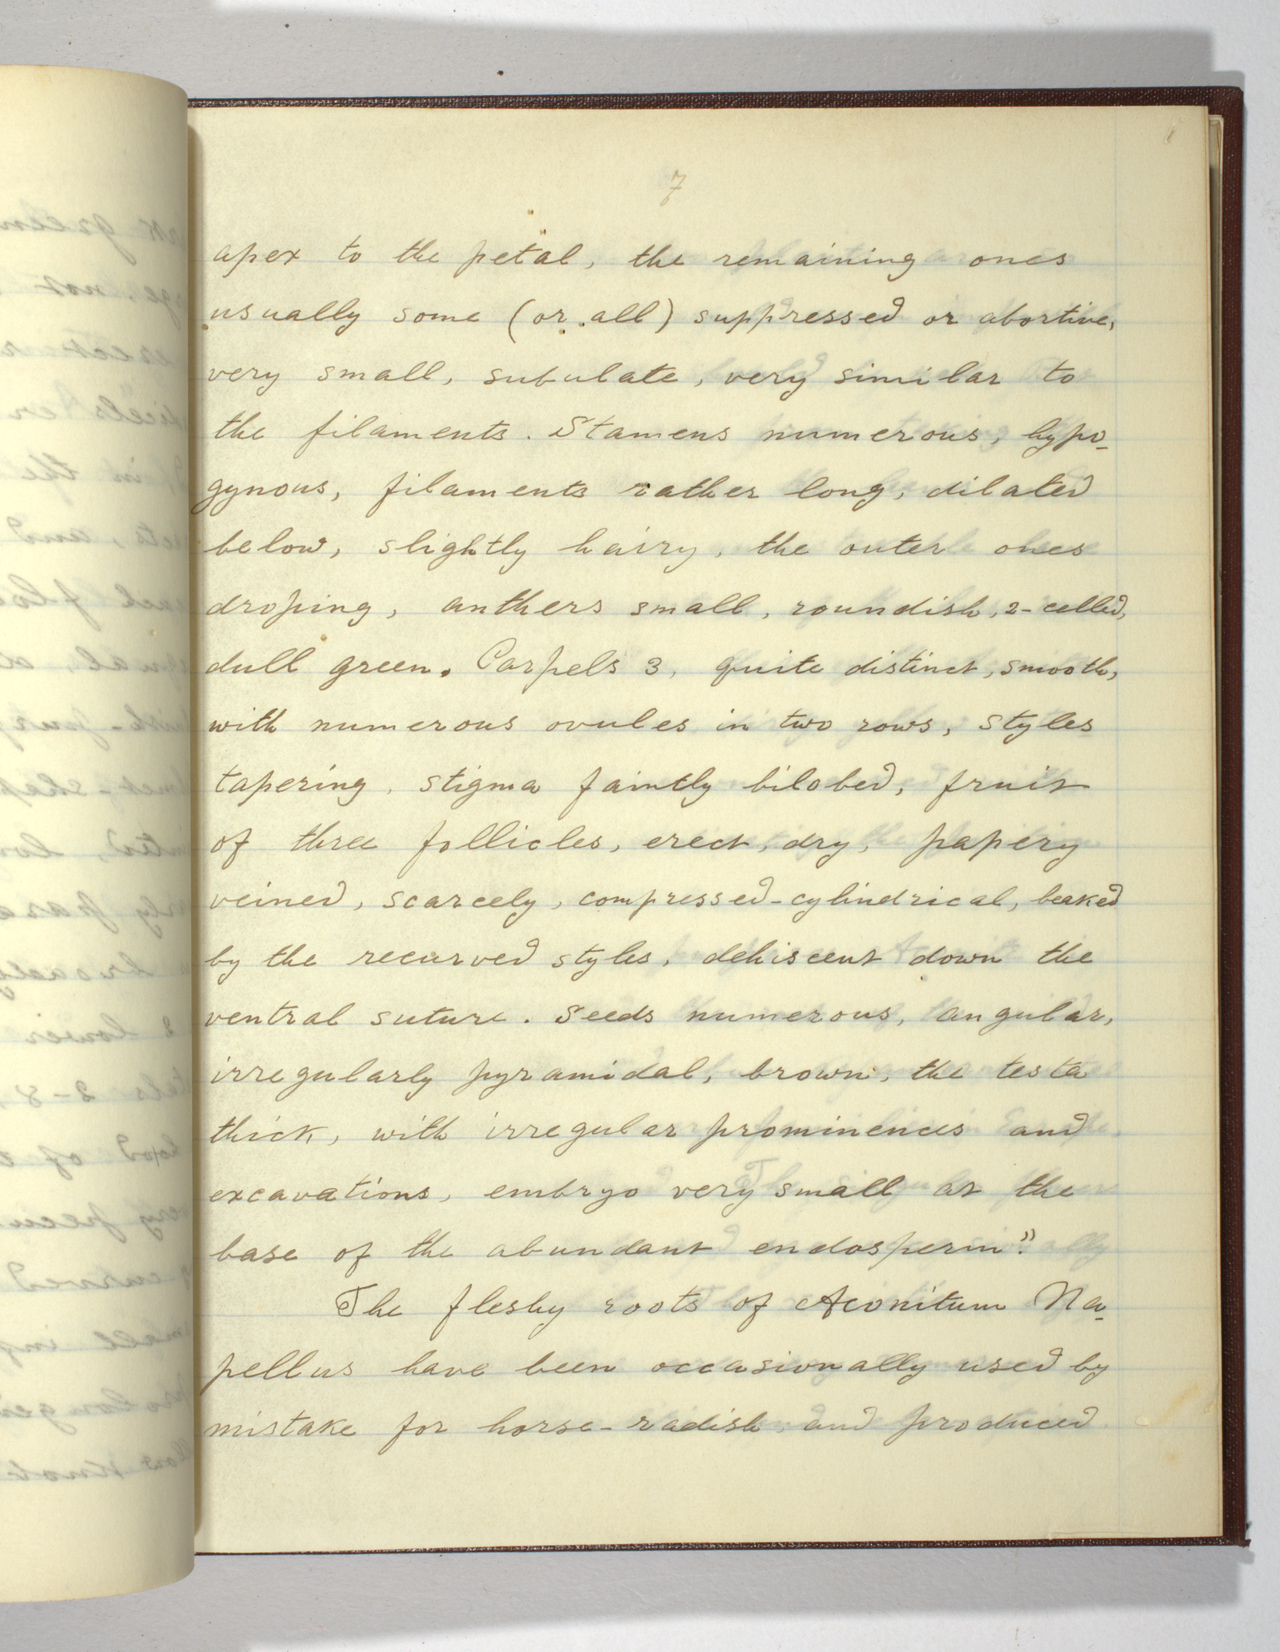 7
apex to the petal, the remaining ones
usually some (or all) suppressed or abortive,
very small, subulate, very similar to
the filaments. Stamens numerous, hypo-
gynous, filaments rather long, dilated
below, slightly hairy, the outer ones
droping, anthers small, roundish, 2-celled,
dull green. Carpels 3, quite distinct, smooth,
with numerous ovules in two rows, styles
tapering, stigma faintly bilobed, fruit
of three follicles, erect, dry, papery
veined, scarcely, compressed-cylindrical, beaked
by the recurved styles, dehiscent down the
ventral suture. Seeds numerous, angular,
irregularly pyramidal, brown, the testa
thick, with irregular prominences and
excavations, embryo very small at the
base of the abundant endosperm".
The fleshy roots of Aconitum Na-
pellus have been occasionally used by
mistake for horse-radish and produced